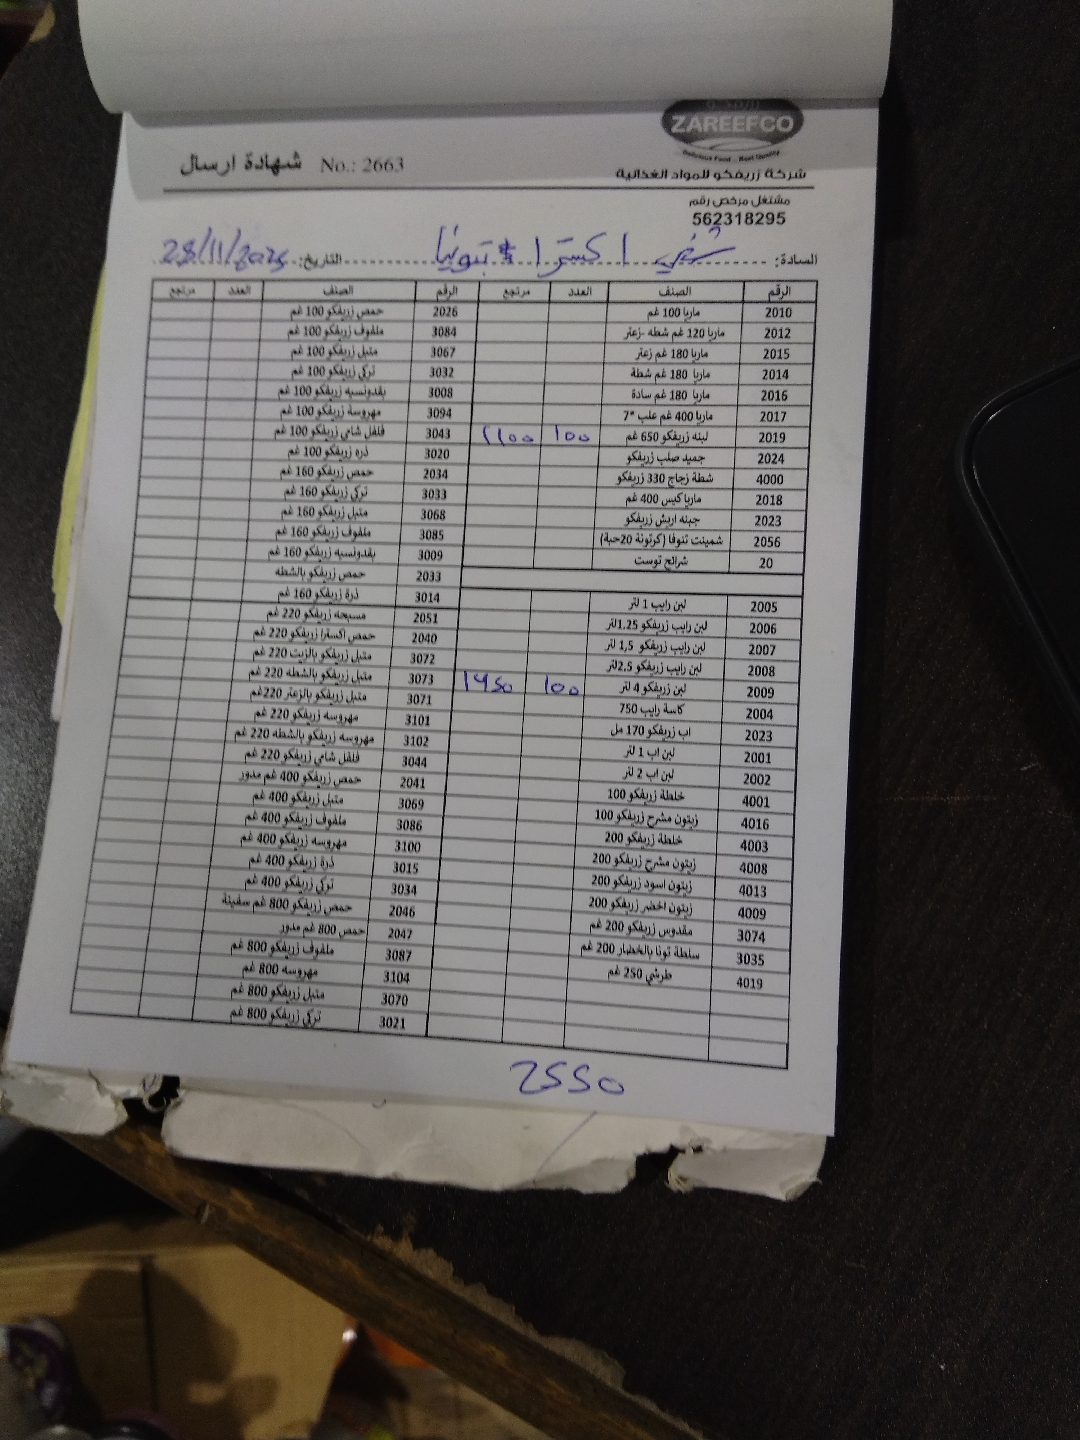 ZAREEFCO
Delicious Food - Best Quality
شهادة ارسال No.: 2663
شركة زريفكو للمواد الغذائية
مشتغل مرخص رقم
562318295
السادة: شفي اكسترا بتونيا التاريخ: 28/11/2025
الرقم الصنف العدد مرتجع الرقم الصنف العدد مرتجع
2010 ماريا 100 غم 2026 حمص زريفكو 100 غم
2012 ماريا 120 غم شطه -زعتر 3084 ملفوف زريفكو 100 غم
2015 ماريا 180 غم زعتر 3067 متبل زريفكو 100 غم
2014 ماريا 180 غم شطة 3032 تركي زريفكو 100 غم
2016 ماريا 180 غم سادة 3008 بقدونسيه زريفكو 100 غم
2017 ماريا 400 غم علب *7 3094 مهروسة زريفكو 100 غم
2019 لبنه زريفكو 650 غم 100 1100 3043 فلفل شامي زريفكو 100 غم
2024 جميد صلب زريفكو 3020 ذره زريفكو 100 غم
4000 شطة زجاج 330 زريفكو 2034 حمص زريفكو 160 غم
2018 ماريا كيس 400 غم 3033 تركي زريفكو 160 غم
2023 جبنه اريش زريفكو 3068 متبل زريفكو 160 غم
2056 شمينت تنوفا (كرتونة 20حبة) 3085 ملفوف زريفكو 160 غم
20 شرائح توست 3009 بقدونسيه زريفكو 160 غم
2033 حمص زريفكو بالشطه
2005 لبن رايب 1 لتر 3014 ذرة زريفكو 160 غم
2006 لبن رايب زريفكو 1.25لتر 2051 مسبحه زريفكو 220 غم
2007 لبن رايب زريفكو 1,5 لتر 2040 حمص اكسترا زريفكو 220 غم
2008 لبن رايب زريفكو 2.5لتر 3072 متبل زريفكو بالزيت 220 غم
2009 لبن زريفكو 4 لتر 100 1450 3073 متبل زريفكو بالشطه 220 غم
2004 كاسة رايب 750 3071 متبل زريفكو بالزعتر 220غم
2023 اب زريفكو 170 مل 3101 مهروسه زريفكو 220 غم
2001 لبن اب 1 لتر 3102 مهروسه زريفكو بالشطه 220 غم
2002 لبن اب 2 لتر 3044 فلفل شامي زريفكو 220 غم
4001 خلطة زريفكو 100 2041 حمص زريفكو 400 غم مدور
4016 زيتون مشرح زريفكو 100 3069 متبل زريفكو 400 غم
4003 خلطة زريفكو 200 3086 ملفوف زريفكو 400 غم
4008 زيتون مشرح زريفكو 200 3100 مهروسه زريفكو 400 غم
4013 زيتون اسود زريفكو 200 3015 ذرة زريفكو 400 غم
4009 زيتون اخضر زريفكو 200 3034 تركي زريفكو 400 غم
3074 مقدوس زريفكو 200 غم 2046 حمص زريفكو 800 غم سفينة
3035 سلطة تونا بالخضار 200 غم 2047 حمص 800 غم مدور
4019 طرشي 250 غم 3087 ملفوف زريفكو 800 غم
3104 مهروسه 800 غم
3070 متبل زريفكو 800 غم
3021 تركي زريفكو 800 غم
2550